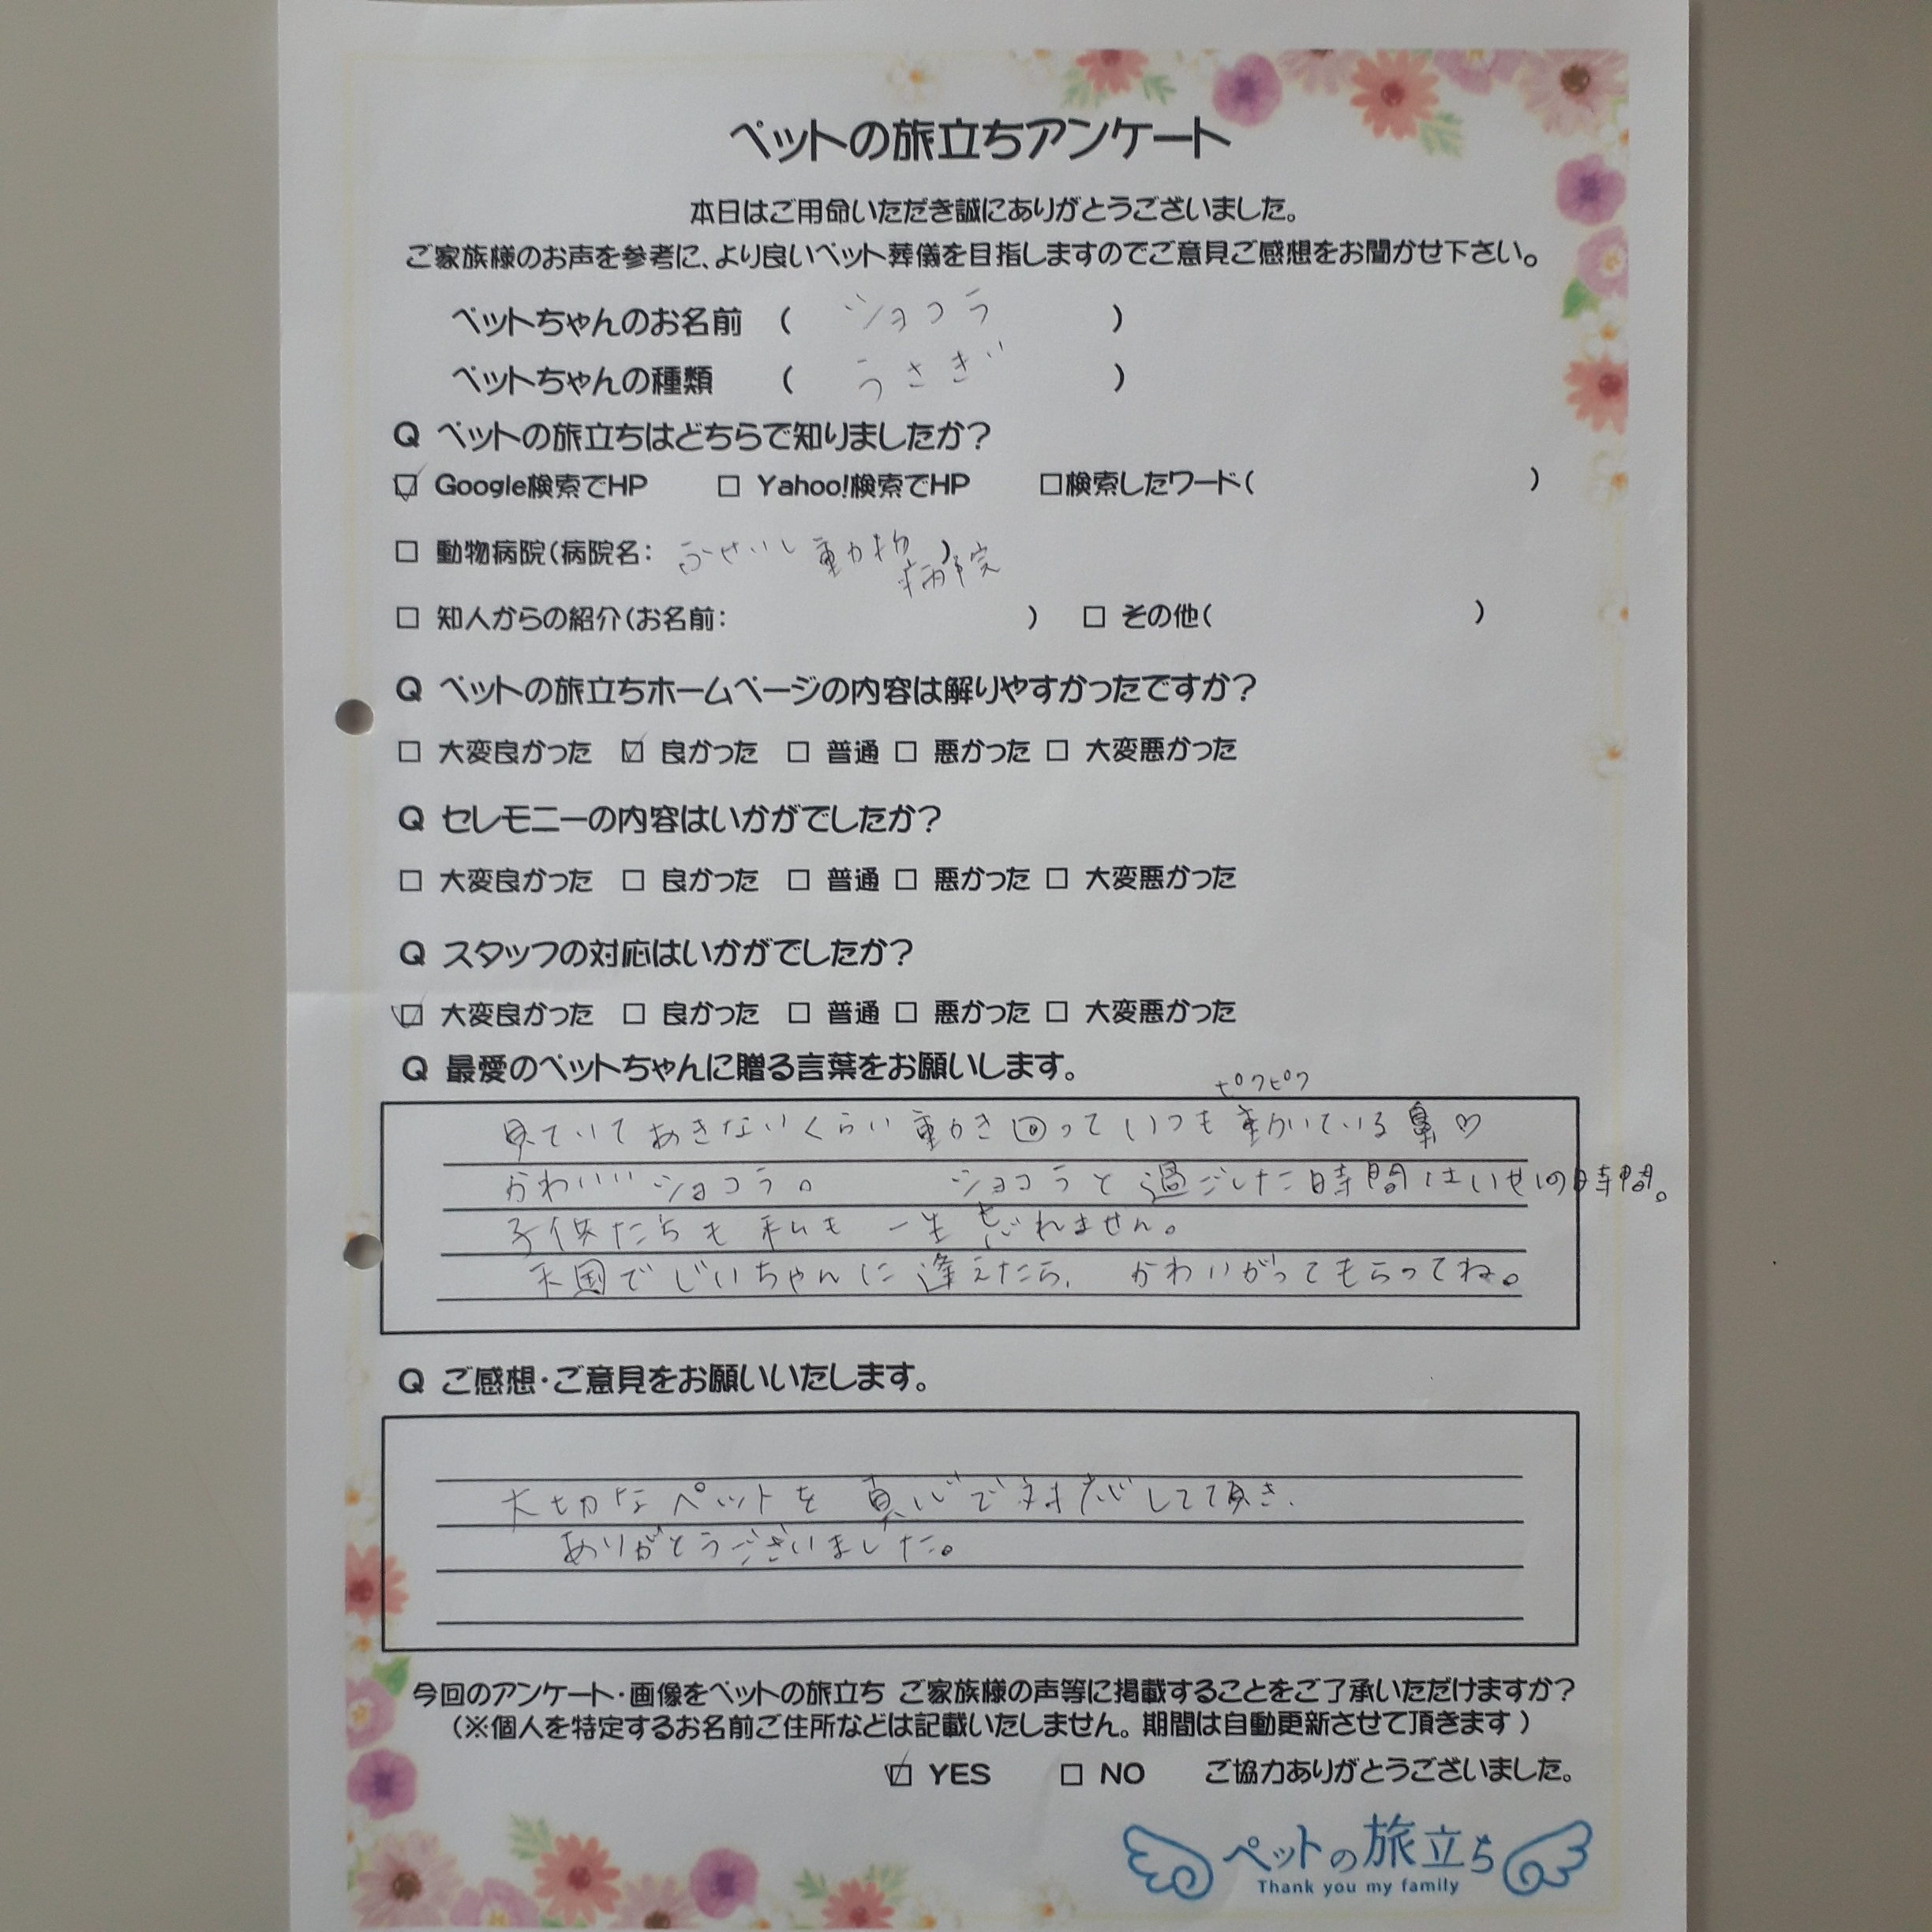 ペットの旅立ちアンケート
本日はご用命いただき誠にありがとうございました。
ご家族様のお声を参考に、より良いペット葬儀を目指しますのでご意見ご感想をお聞かせ下さい。
ペットちゃんのお名前 ( ショコラ )
ペットちゃんの種類 ( うさぎ )
Q ペットの旅立ちはどちらで知りましたか?
☑ Google検索でHP □ Yahoo!検索でHP □検索したワード( )
□ 動物病院(病院名: 動物病院 )
□ 知人からの紹介(お名前: ) □ その他( )
Q ペットの旅立ちホームページの内容は解りやすかったですか?
□ 大変良かった ☑ 良かった □ 普通 □ 悪かった □ 大変悪かった
Q セレモニーの内容はいかがでしたか?
□ 大変良かった □ 良かった □ 普通 □ 悪かった □ 大変悪かった
Q スタッフの対応はいかがでしたか?
☑ 大変良かった □ 良かった □ 普通 □ 悪かった □ 大変悪かった
Q 最愛のペットちゃんに贈る言葉をお願いします。
ピクピク
見ていてあきないくらい動き回っていつも動いている鼻♡
かわいいショコラ。 ショコラと過ごした時間はいせの時間。
子供たちも私も一生忘れません。
天国でじいちゃんに逢えたら、かわいがってもらってね。
Q ご感想・ご意見をお願いいたします。
大切なペットを真心で対応して頂き、
ありがとうございました。
今回のアンケート・画像をペットの旅立ち ご家族様の声等に掲載することをご了承いただけますか?
(※個人を特定するお名前ご住所などは記載いたしません。期間は自動更新させて頂きます)
☑ YES □ NO ご協力ありがとうございました。
ペットの旅立ち
Thank you my family